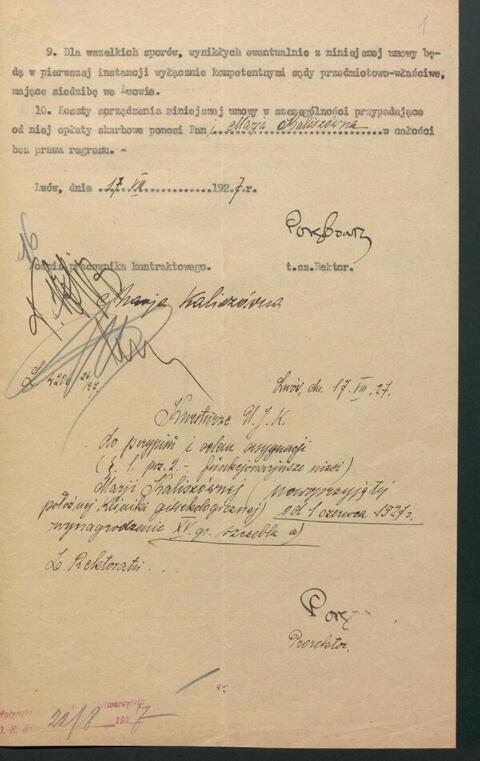 1
9. Dla wszelkich sporów, wynikłych ewentualnie z niniejszej umowy bę-
dą w pierwszej instancji wyłącznie kompetentnymi sądy przedmiotowo-właściwe,
mające siedzibę we Lwowie.
10. Koszty sporządzenia niniejszej umowy w szczególności przypadające
od niej opłaty skarbowe ponosi Pani Marja Kaliszówna w całości
bez prawa regresu. -
Lwów, dnia 17. VIII 1927.r.
podpis pracownika kontraktowego.
t.cz.Rektor.
Marja Kaliszówna
Lwów, dn. 17. VIII. 27.
Kwesturze U. J. K.
do przypisu i celem asygnacji
(§. 1. poz. 2. - funkcjonarjusze niżsi)
Marji Kaliszównej (nowoprzyjętej
położnej Kliniki ginekologicznej) od 1 czerwca 1927 r.
wynagrodzenie XV. gr. szczebla a)
Z Rektoratu . . .
Prorektor.
22/8 1927